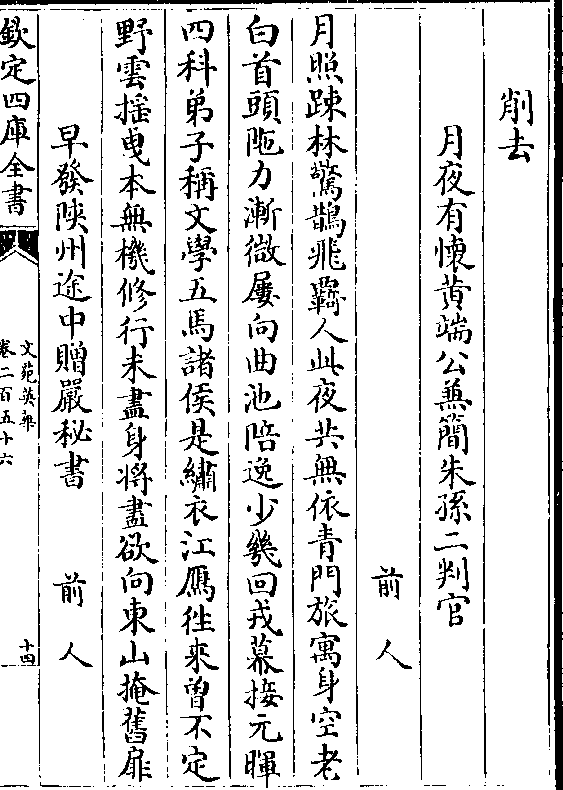 削去
月夜有懷黄端公兼簡朱孫二判官
前人
月照踈林驚鵲飛羈人此夜共無依青門旅寓身空老
白首頭陁力漸微屢向曲池陪逸少幾回戎幕接元暉
四科弟子稱文學五馬諸侯是繡衣江鴈徃來曾不定
野雲揺曳本無機修行未盡身将盡欲向東山掩舊扉
早發陜州途中贈嚴秘書 前人
欽定四庫全書
文苑英華
卷二百五十六
十四